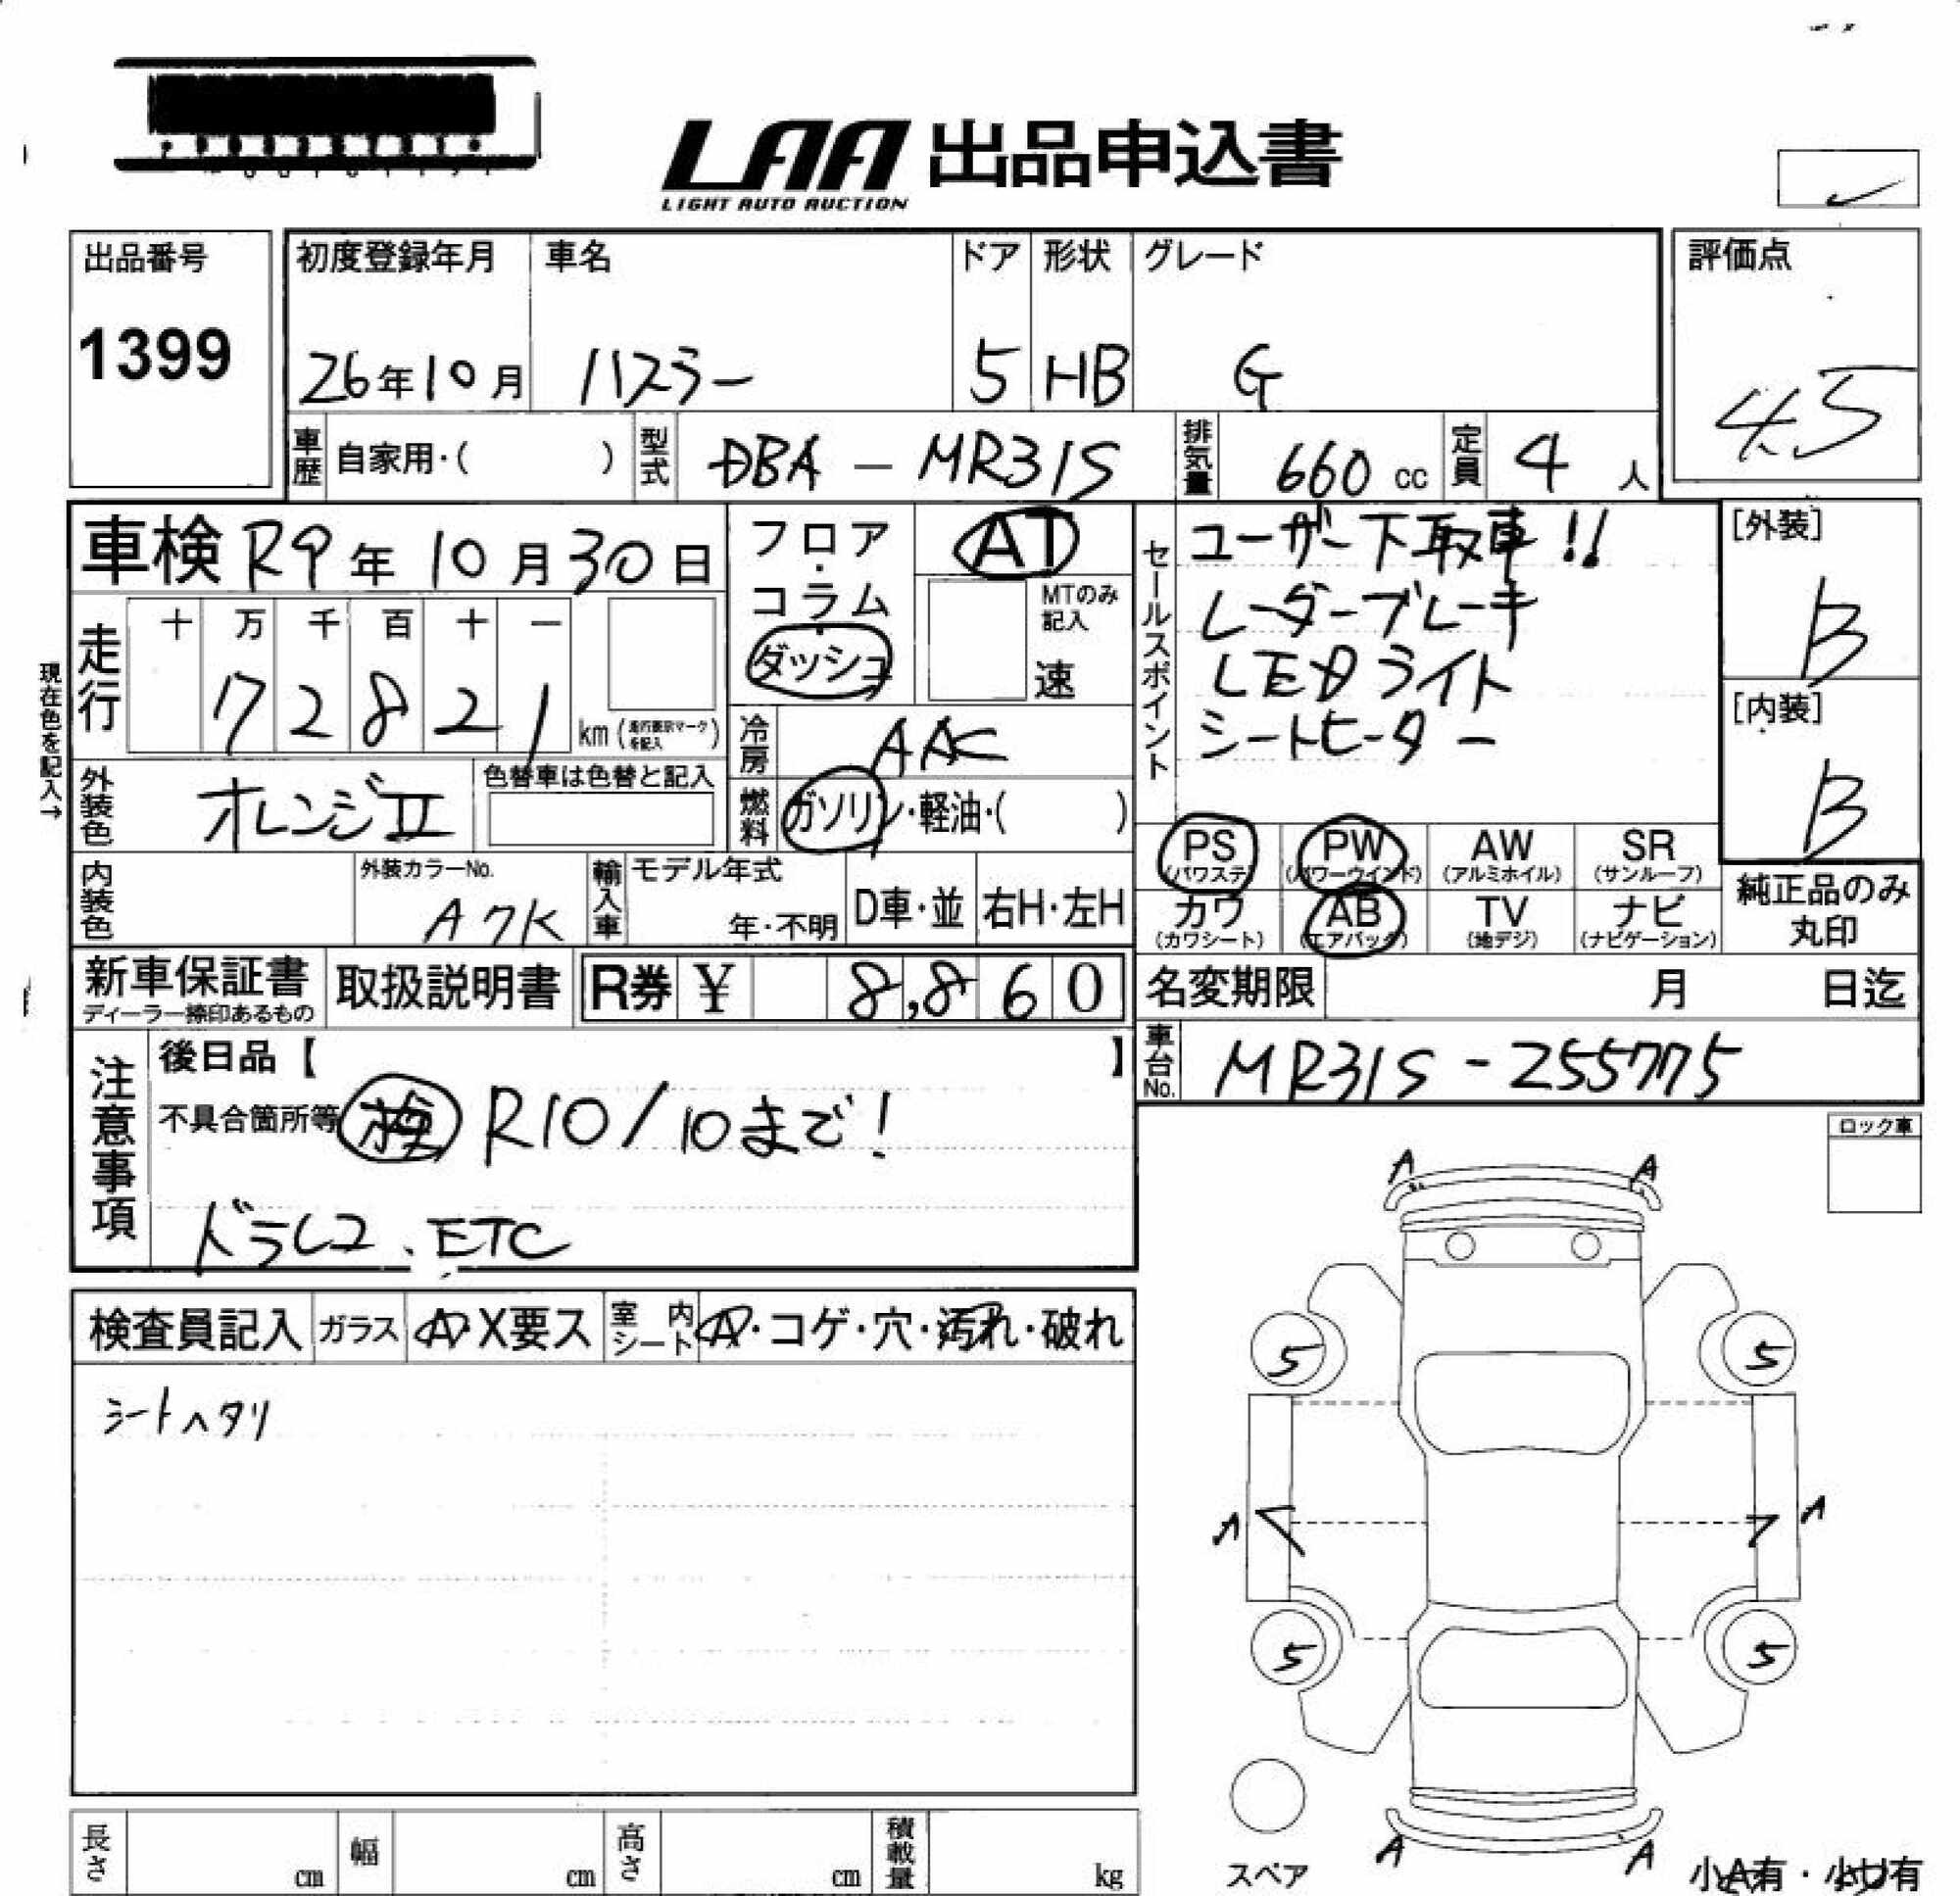 LAA 出品申込書
LIGHT AUTO AUCTION
出品番号
1399
初度登録年月 車名 ドア 形状 グレード
26年10月 ハスラー 5 HB G
評価点
4.5
車歴 自家用・( ) 型式 DBA - MR31S 排気量 660 cc 定員 4 人
車検 R9年 10月 30日
フロア・コラム・ダッシュ
AT
MTのみ記入
速
セールスポイント
ユーザー下取車!!
レーダーブレーキ
LEDライト
シートヒーター
[外装]
B
[内装]
B
現在色を記入→
走行 十 万 千 百 十 一
7 2 8 2 1 km (走行表示マークを記入)
冷房 AAC
外装色 オレンジII 色替車は色替と記入
燃料 ガソリン・軽油・( )
PS (パワステ) PW (パワーウインド) AW (アルミホイル) SR (サンルーフ)
カワ (カワシート) AB (エアバック) TV (地デジ) ナビ (ナビゲーション)
純正品のみ丸印
内装色 外装カラーNo. A7K 輸入車 モデル年式 年・不明 D車・並 右H・左H
新車保証書 ディーラー捺印あるもの 取扱説明書 R券 ¥ 8,860
名変期限 月 日迄
注意事項
後日品【 】
不具合箇所等 検 R10/10まで!
ドラレコ、ETC
車台No. MR31S-255775
ロック車
検査員記入 ガラス A・X要ス 室内シート A・コゲ・穴・汚れ・破れ
シートヘタリ
A A
5 5
A A
5 5
A A
スペア
小A有・小U有
長さ cm 幅 cm 高さ cm 積載量 kg